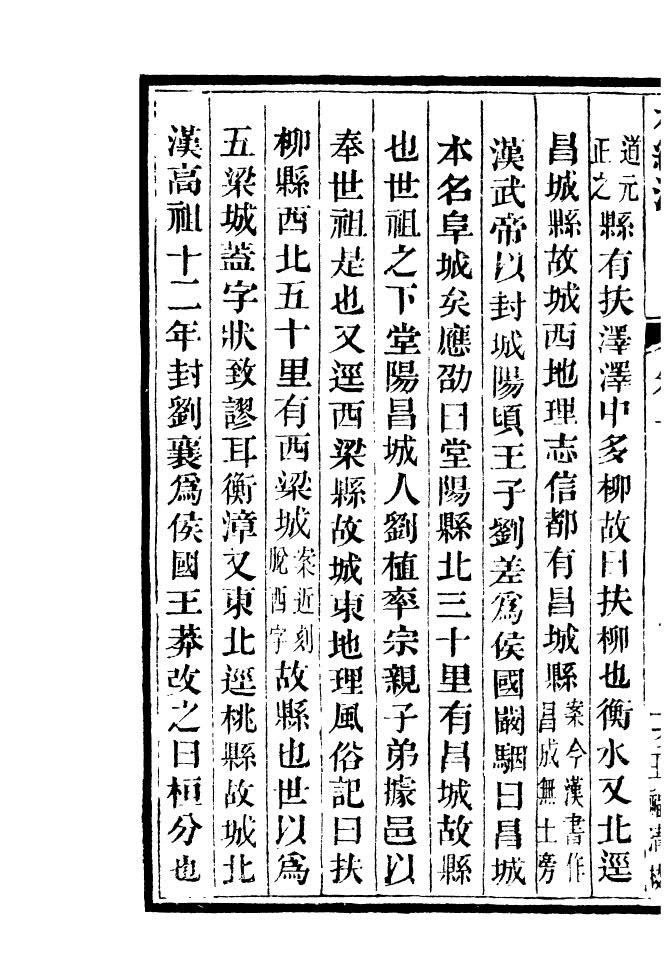 道元正之縣有扶澤澤中多柳故曰扶柳也衡水又北逕
昌城縣故城西地理志信都有昌城縣案今漢書作昌成無土旁
漢武帝以封城陽頃王子劉差爲侯國闞駰曰昌城
本名阜城矣應劭曰堂陽縣北三十里有昌城故縣
也世祖之下堂陽昌城人劉植率宗親子弟據邑以
奉世祖是也又逕西梁縣故城東地理風俗記曰扶
柳縣西北五十里有西梁城案近刻脫西字故縣也世以爲
五梁城蓋字狀致謬耳衡漳又東北逕桃縣故城北
漢高祖十二年封劉襄爲侯國王莽改之曰桓分也